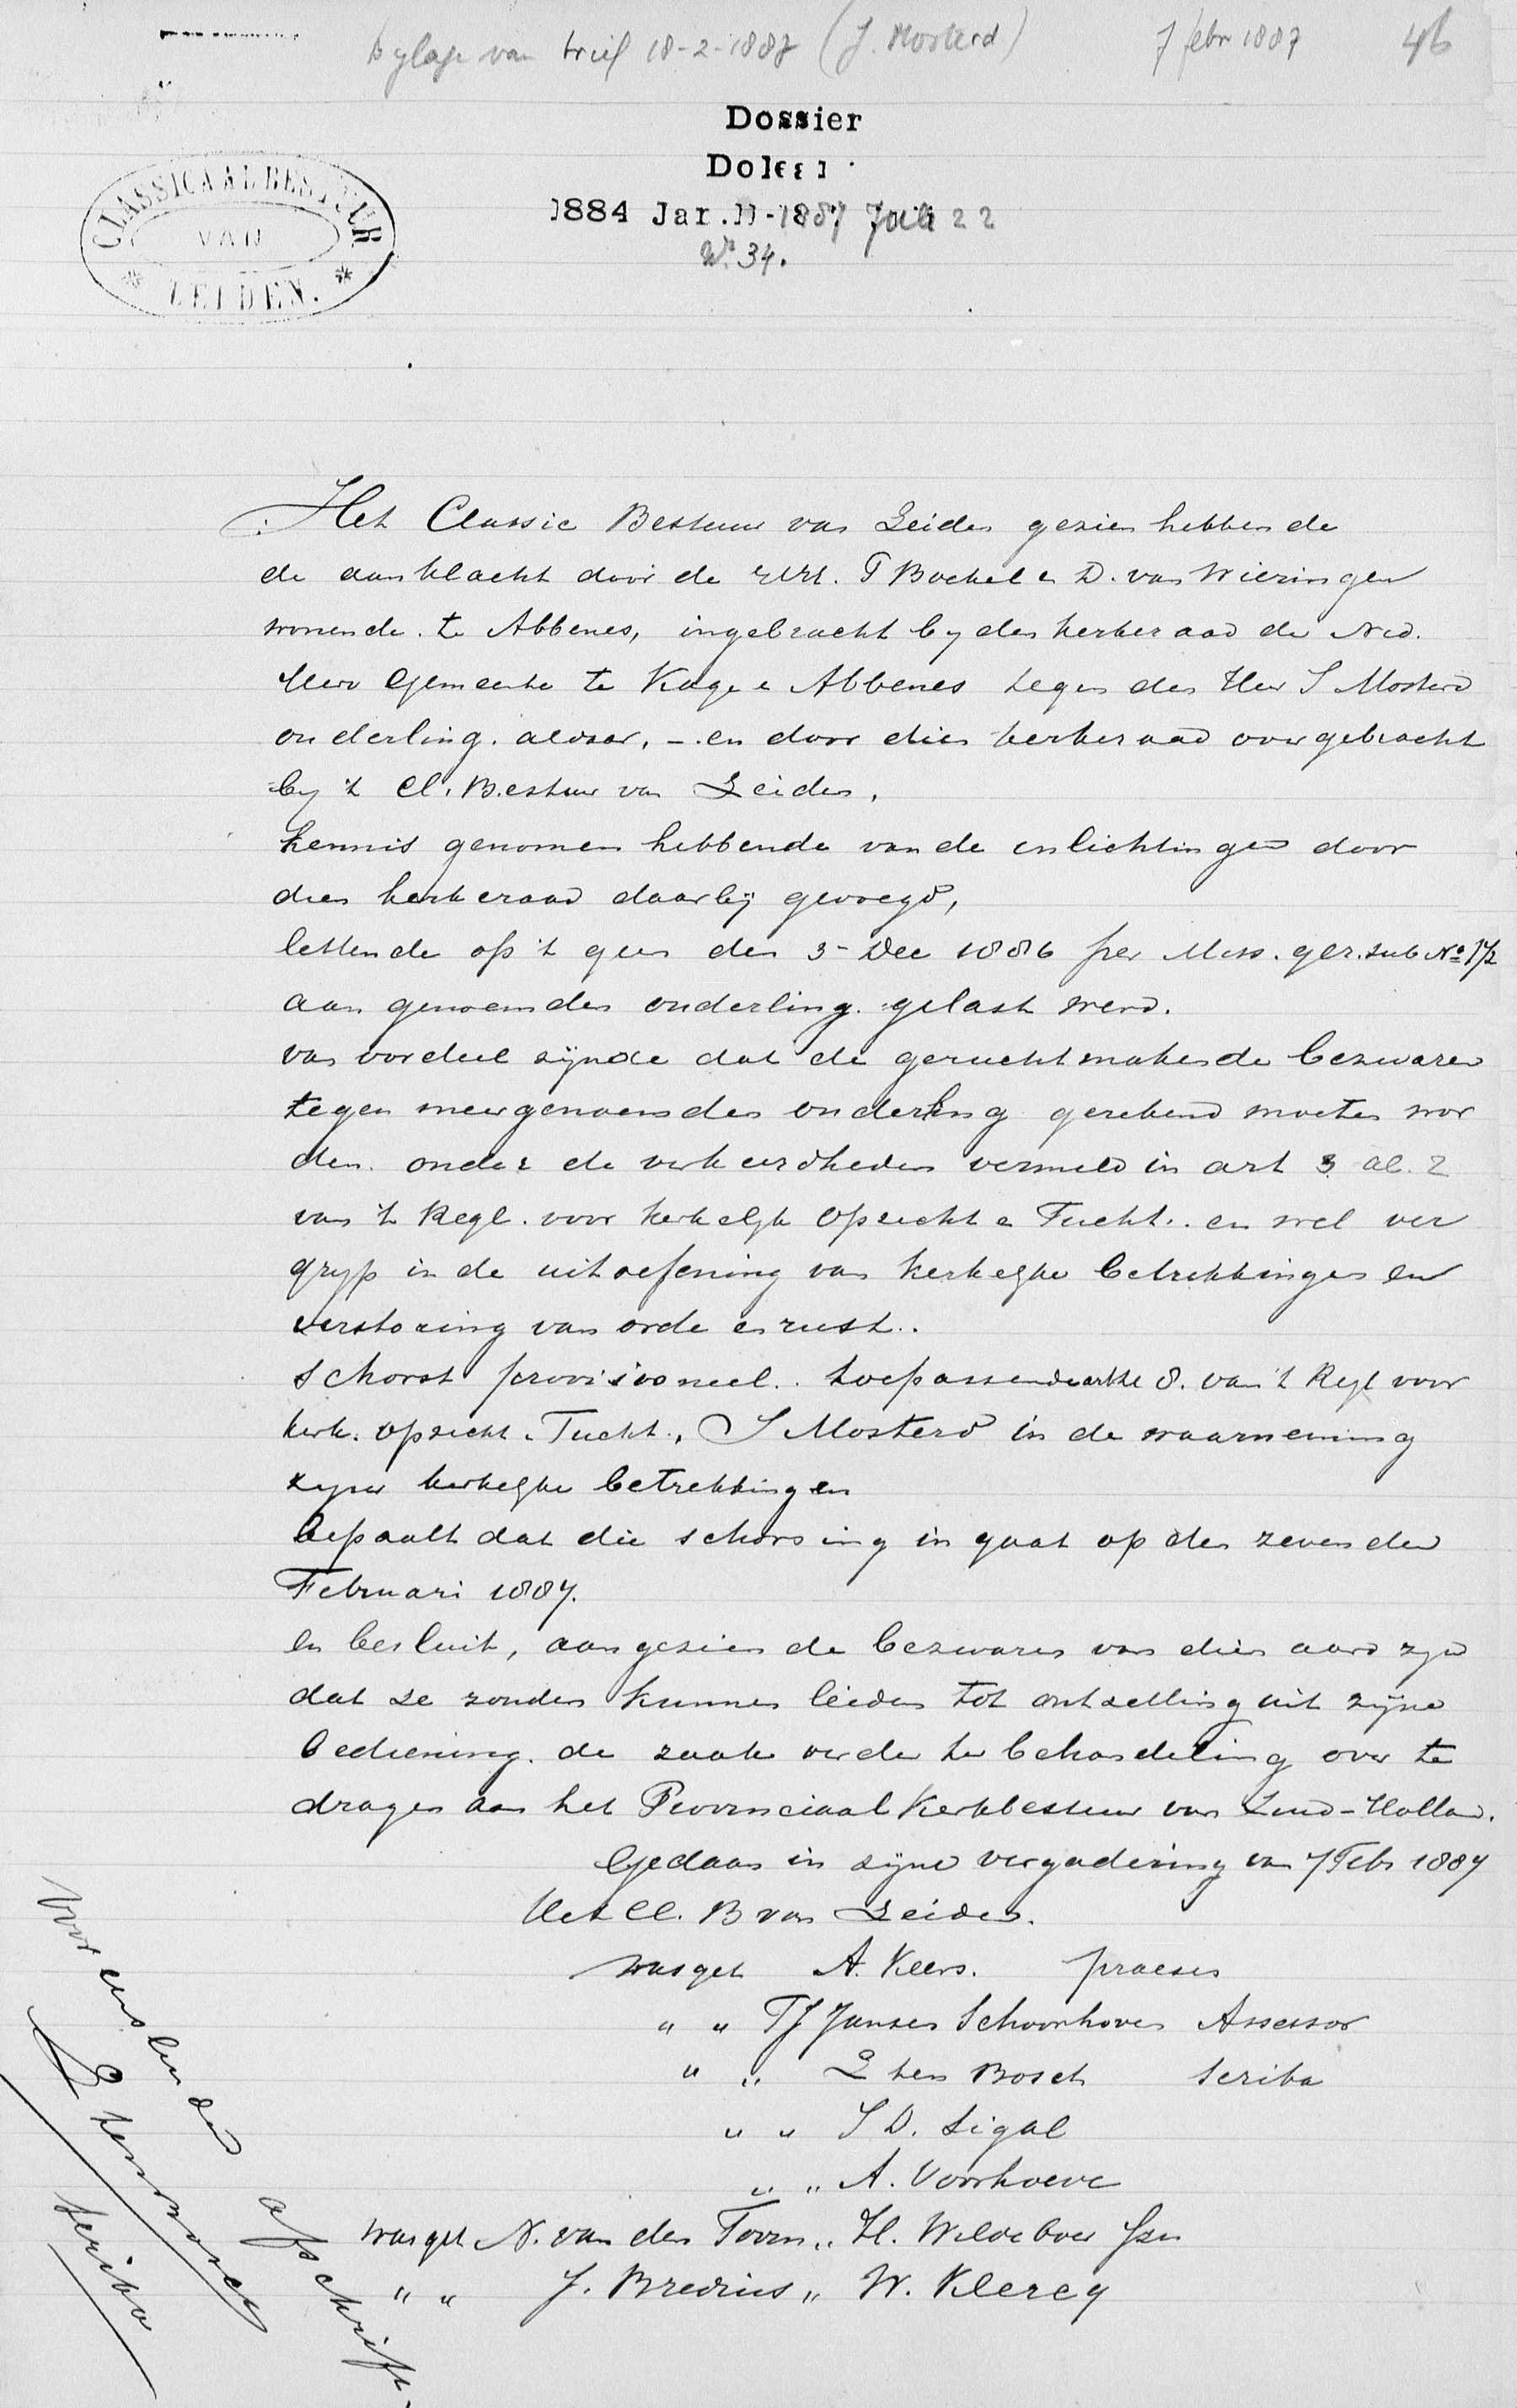 bylage van brief 18-2-1887 (J. Mosterd) 7 febr 1887 46
Dossier
Doleei
1884 Jar. 11-1887 Juli 22
No. 34.
CLASSICAAL BESTUUR
VAN
LEIDEN.
Het Classic Bestuur van Leiden gezien hebbende
de aanklacht door de EEHH. T Bockel en D. van Wieringen
wonende te Abbenes, ingebracht by den kerkeraad der Ned.
Herv Gemeente te Kage en Abbenes tegen den Heer J Mosterd
ouderling aldaar, - en door dien kerkeraad overgebracht
by 't Cl. Bestuur van Leiden,
kennis genomen hebbende van de inlichtingen door
dien kerkeraad daarbij gevoegd,
lettende op 't geen den 3 Dec 1886 per Miss. get. sub No 172
aan genoemden ouderling gelast werd.
van oordeel zijnde dat de geruchtmakende bezwaren
tegen meergenoemden ouderling gerekend moeten wor
den onder de verkeerdheden vermeld in art 3 al. 2
van 't Regl. voor kerkelyk Opzicht en Tucht. en wel ver
gryp in de uitoefening van kerkelyke betrekkingen en
verstoring van orde en rust.
schorst provisioneel. toepassende artkl 8. van 't Regl voor
kerk. opzicht en Tucht., J Mosterd in de waarneming
zyner kerkelyke betrekkingen
bepaalt dat die schorsing in gaat op den zevenden
Februari 1887.
en besluit, aangezien de bezwaren van dien aard zyn
dat ze zouden kunnen leiden tot ontzetting uit zijne
bediening. de zaak verder ter behandeling over te
dragen aan het Provinciaal Kerkbestuur van Zuid-Holland.
Gedaan in zijne vergadering van 7 Febr 1887
Het Cl. B van Leiden.
was get A. Keers. praeses
" " TJ Jansen Schoonhoven Assessor
" " L ten Bosch Scriba
" " J D. Sigal
" " A. Voorhoeve
was get N. van den Toorn " H. Wildeboer Jzn
" " J. Bredius " W. Klercq
Voor eensluidend afschrift.
L ten Bosch
scriba